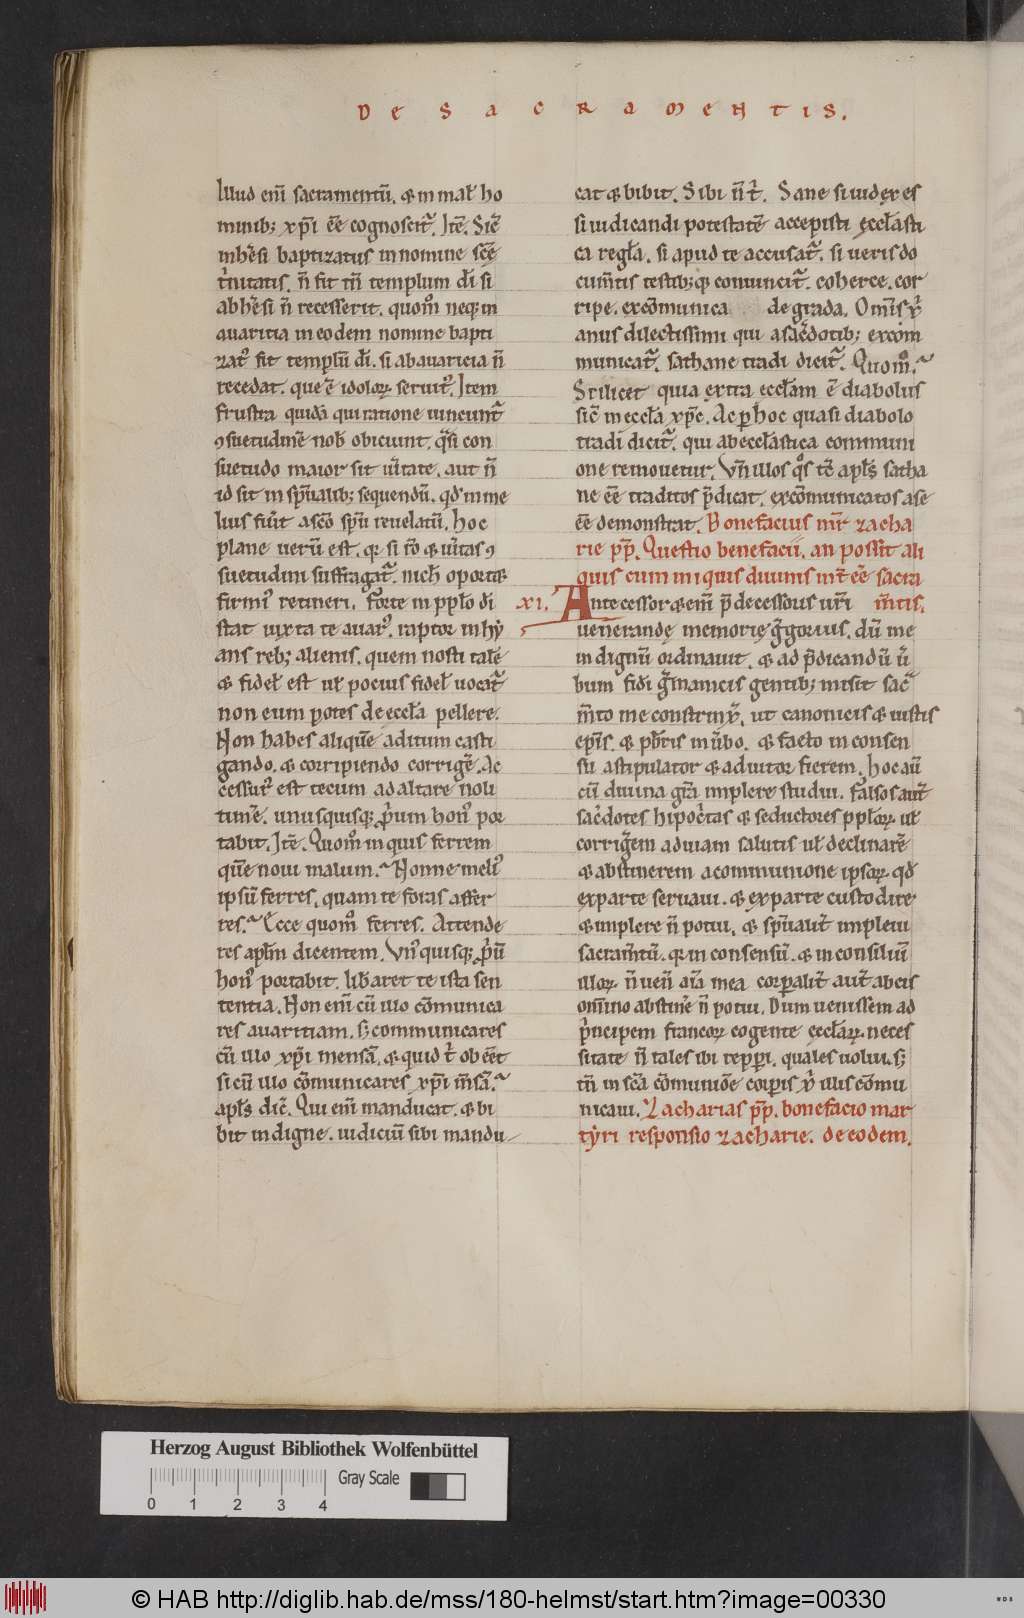 DE SACRAMENTIS.
Illud eni̅ sacramentu̅. & in mał ho
minib; xp̅i ee̅ cognoscit᷑. Ite̅. Sic̅
inhe̅si baptizatus in nomine sce̅
t̍nitatis. n̅ fit tn̅ templum di̅ si
abhe̅si n̅ recesserit. quom̊ neq; in
auaritia in eodem nomine bapti
zat᷒ fit templu̅ di̅. si abauaricia n̅
recedat. que e̅ idoloꝝ seruit᷒. Item
frustra quida̅ qui ratione uincunt᷑
ꝯsuetudine̅ nob̅ obiciunt. q̅si con
suetudo maior sit u̅itate. aut n̅
id sit in sp̅ualib; sequendu̅. qd̅ in me
lius fu̅it asc̅o sp̅u reuelatu̅. hoc
plane ueru̅ est. q̅ si r̅o & u̅itas ꝯ
suetudini suffragat᷑. nich̅ oport&
firmi᷒ retineri. Forte in pp̅lo di̅
stat iuxta te auar᷒. raptor inhẏ
ans reb; alienis. quem nosti tale̅
& fideł est uł pocius fideł uocat᷑
non eum potes de eccła pellere.
Non habes alique̅ aditum casti
gando. & corripiendo corrige̅. Ac
cessur᷒ est tecum ad altare noli
time̅. unusquisq; p̍um hon᷒ por
tabit. Ite̅. Quom̊ inquis ferrem
que̅ noui malum. Nonne meli᷒
ipsu̅ ferres. quam te foras affer
res. Ecce quom̊ ferres. Attende
res apłm dicentem. Vn᷒quisq; p̍u̅
hon᷒ portabit. lib̅aret te ista sen
tentia. Non eni̅ cu̅ illo co̅munica
res auaritiam. s; communicares
cu̅ illo xp̅i mensa̅. & quid t̍ obe̅et
si cu̅ illo co̅municares xp̅i m̅sa̅.
apłs dic̅. Qui eni̅ manducat. & bi
bit indigne. iudiciu̅ sibi mandu
cat & bibit. Sibi n̅ t̍. Sane si iudex es
si iudicandi potestate̅ accepisti eccłasti
ca regła. si apud te accusat᷑. si ueris do
cum̅tis testib; q; conuincit᷑. coherce. cor
ripe. exco̅munica degrada. Om̅is xp̅i
anus dilectissimi qui a sace̅dotib; excom
municat᷑. sathane tradi dicit᷑. Quom̊.
Scilicet quia extra eccłam e̅ diabolus
sic̅ in eccła xp̅c. Ac p hoc quasi diabolo
tradi dicit᷑. qui ab eccłastica communi
one remouetur. Vn̅ illos q̊s te̅ apłs satha
ne ee̅ traditos p̅dicat. exco̅municatos a se
ee̅ demonstrat. Bonefacius mr̅ zacha
rie pp̅. Questio benefacii̅. an possit ali
quis cum iniquis diuinis int̅ ee̅ sacra
XI. Antecessor & eni̅ p̅decessoris ur̅i m̅tis.
uenerande memorie g̅gorius. du̅ me
indignu̅ ordinauit. & ad p̅dicandu̅ u̅
bum fidi g̅manicis gentib; misit sac᷑
m̅to me constrinx̅. ut canonicis & iustis
epi̅s. & pb̅ris in u̅bo. & facto in consen
su astipulator & adiutor fierem. hoc au̅
cu̅ diuina gr̅a implere studui. Falsos aut̅
sac̍dotes hipoc̍tas & seductores pp̅łoꝝ. uł
corrige̅m ad uiam salutis uł declinare̅
& abstinerem a communione ipsoꝝ. qd̅
ex parte seruaui. & ex parte custodire
& implere n̅ potui. & sp̅ualit̅ impleui
sacram̅tu̅. q̅ in consensu̅. & in consiliu̅
illoꝝ n̅ ueni̅ ai̅a mea corpalit̅ aut̅ ab eis
omnino abstine̅ n̅ potui. Dum uenissem ad
p̍ncipem francoꝝ cogente eccłarꝝ neces
sitate n̅ tales ibi repperi. quales uolui. s;
tn̅ in sc̅a co̅munio̅e corpis xp̅i illis co̅mu
nicaui. Zacharias pp̅. bonefacio mar
tẏri responsio zacharie. de eodem.
Herzog August Bibliothek Wolfenbüttel
Gray Scale
0 1 2 3 4
© HAB http://diglib.hab.de/mss/180-helmst/start.htm?image=00330